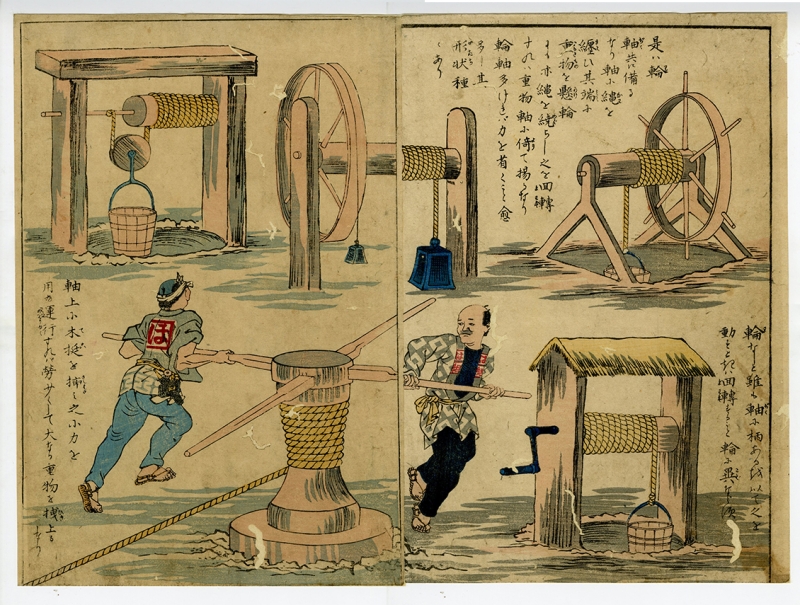 是ハ輪
軸共に備る
なり軸に縄を
纏ひ其端に
重物を懸輪
にも亦縄を繞らし之を回轉
すれバ重物軸に倚て揚るなり
輪軸多けれバ力を省くこと愈
多し其
形状種
〻あり
輪なしと雖も軸に柄あるを以て之を
動もとき回轉すること輪と異なる
軸上に木挺を挿し之に力を
用ひ運行すれバ労せずして大なる重物を拽上る
なり
ほ